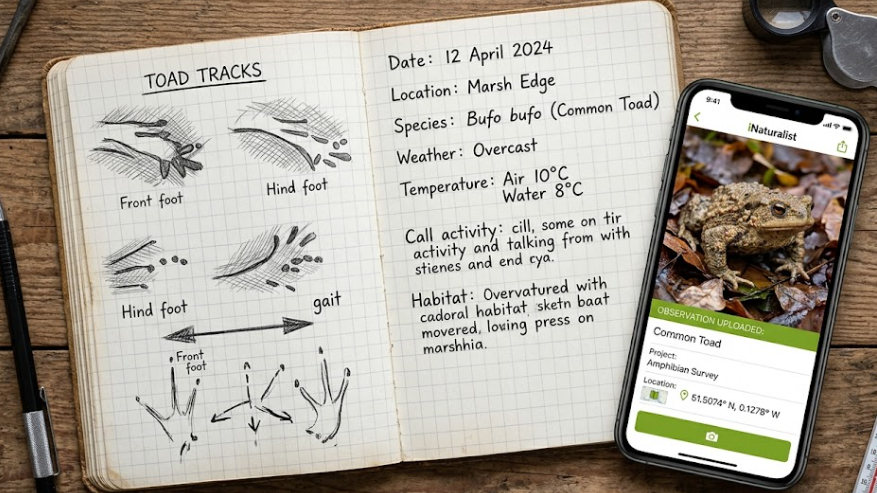 TOAD TRACKS
Front foot
Hind foot
Hind foot
gait
Front
foot
Date: 12 April 2024
Location: Marsh Edge
Species: Bufo bufo (Common Toad)
Weather: Overcast
Temperature: Air 10°C
Water 8°C
Call activity: cill, some on tir
activity and talking from with
stienes and end cya.
Habitat: Overvatured with
cadoral habitat, sketn baat
movered, lowing press on
marshhia.
9:41
iNaturalist
OBSERVATION UPLOADED:
Common Toad
Project:
Amphibian Survey
Location:
51.5074° N, 0.1278° W